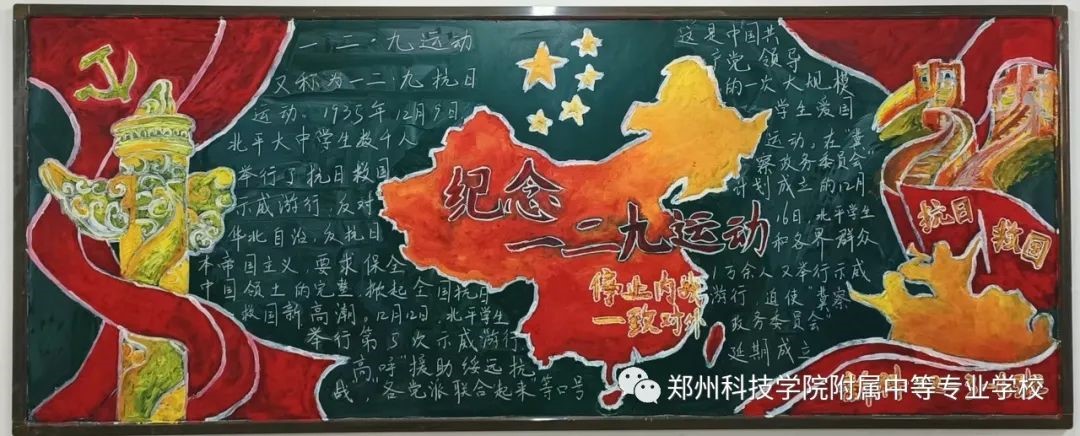 一二·九运动
又称为一二·九抗日
运动。1935年12月9日
北平大中学生数千人
举行了抗日救国
示威游行,反对
华北自治,反抗日
本帝国主义,要求保全
中国领土的完整,掀起全国抗日
救国新高潮。12月12日,北平学生
举行第5次示威游行
高呼“援助绥远抗
战”,“各党派联合起来”等口号
纪念
一二九运动
停止内战
一致对外
这是中国共
产党领导
的一次大规模
学生爱国
运动,在“冀
察政务委员会”
计划成立的12月
16日,北平学生
和各界群众
1万余人又举行示威
游行,迫使“冀察
政务委员会”
延期成立
抗日
救国
郑州科技学院附属中等专业学校